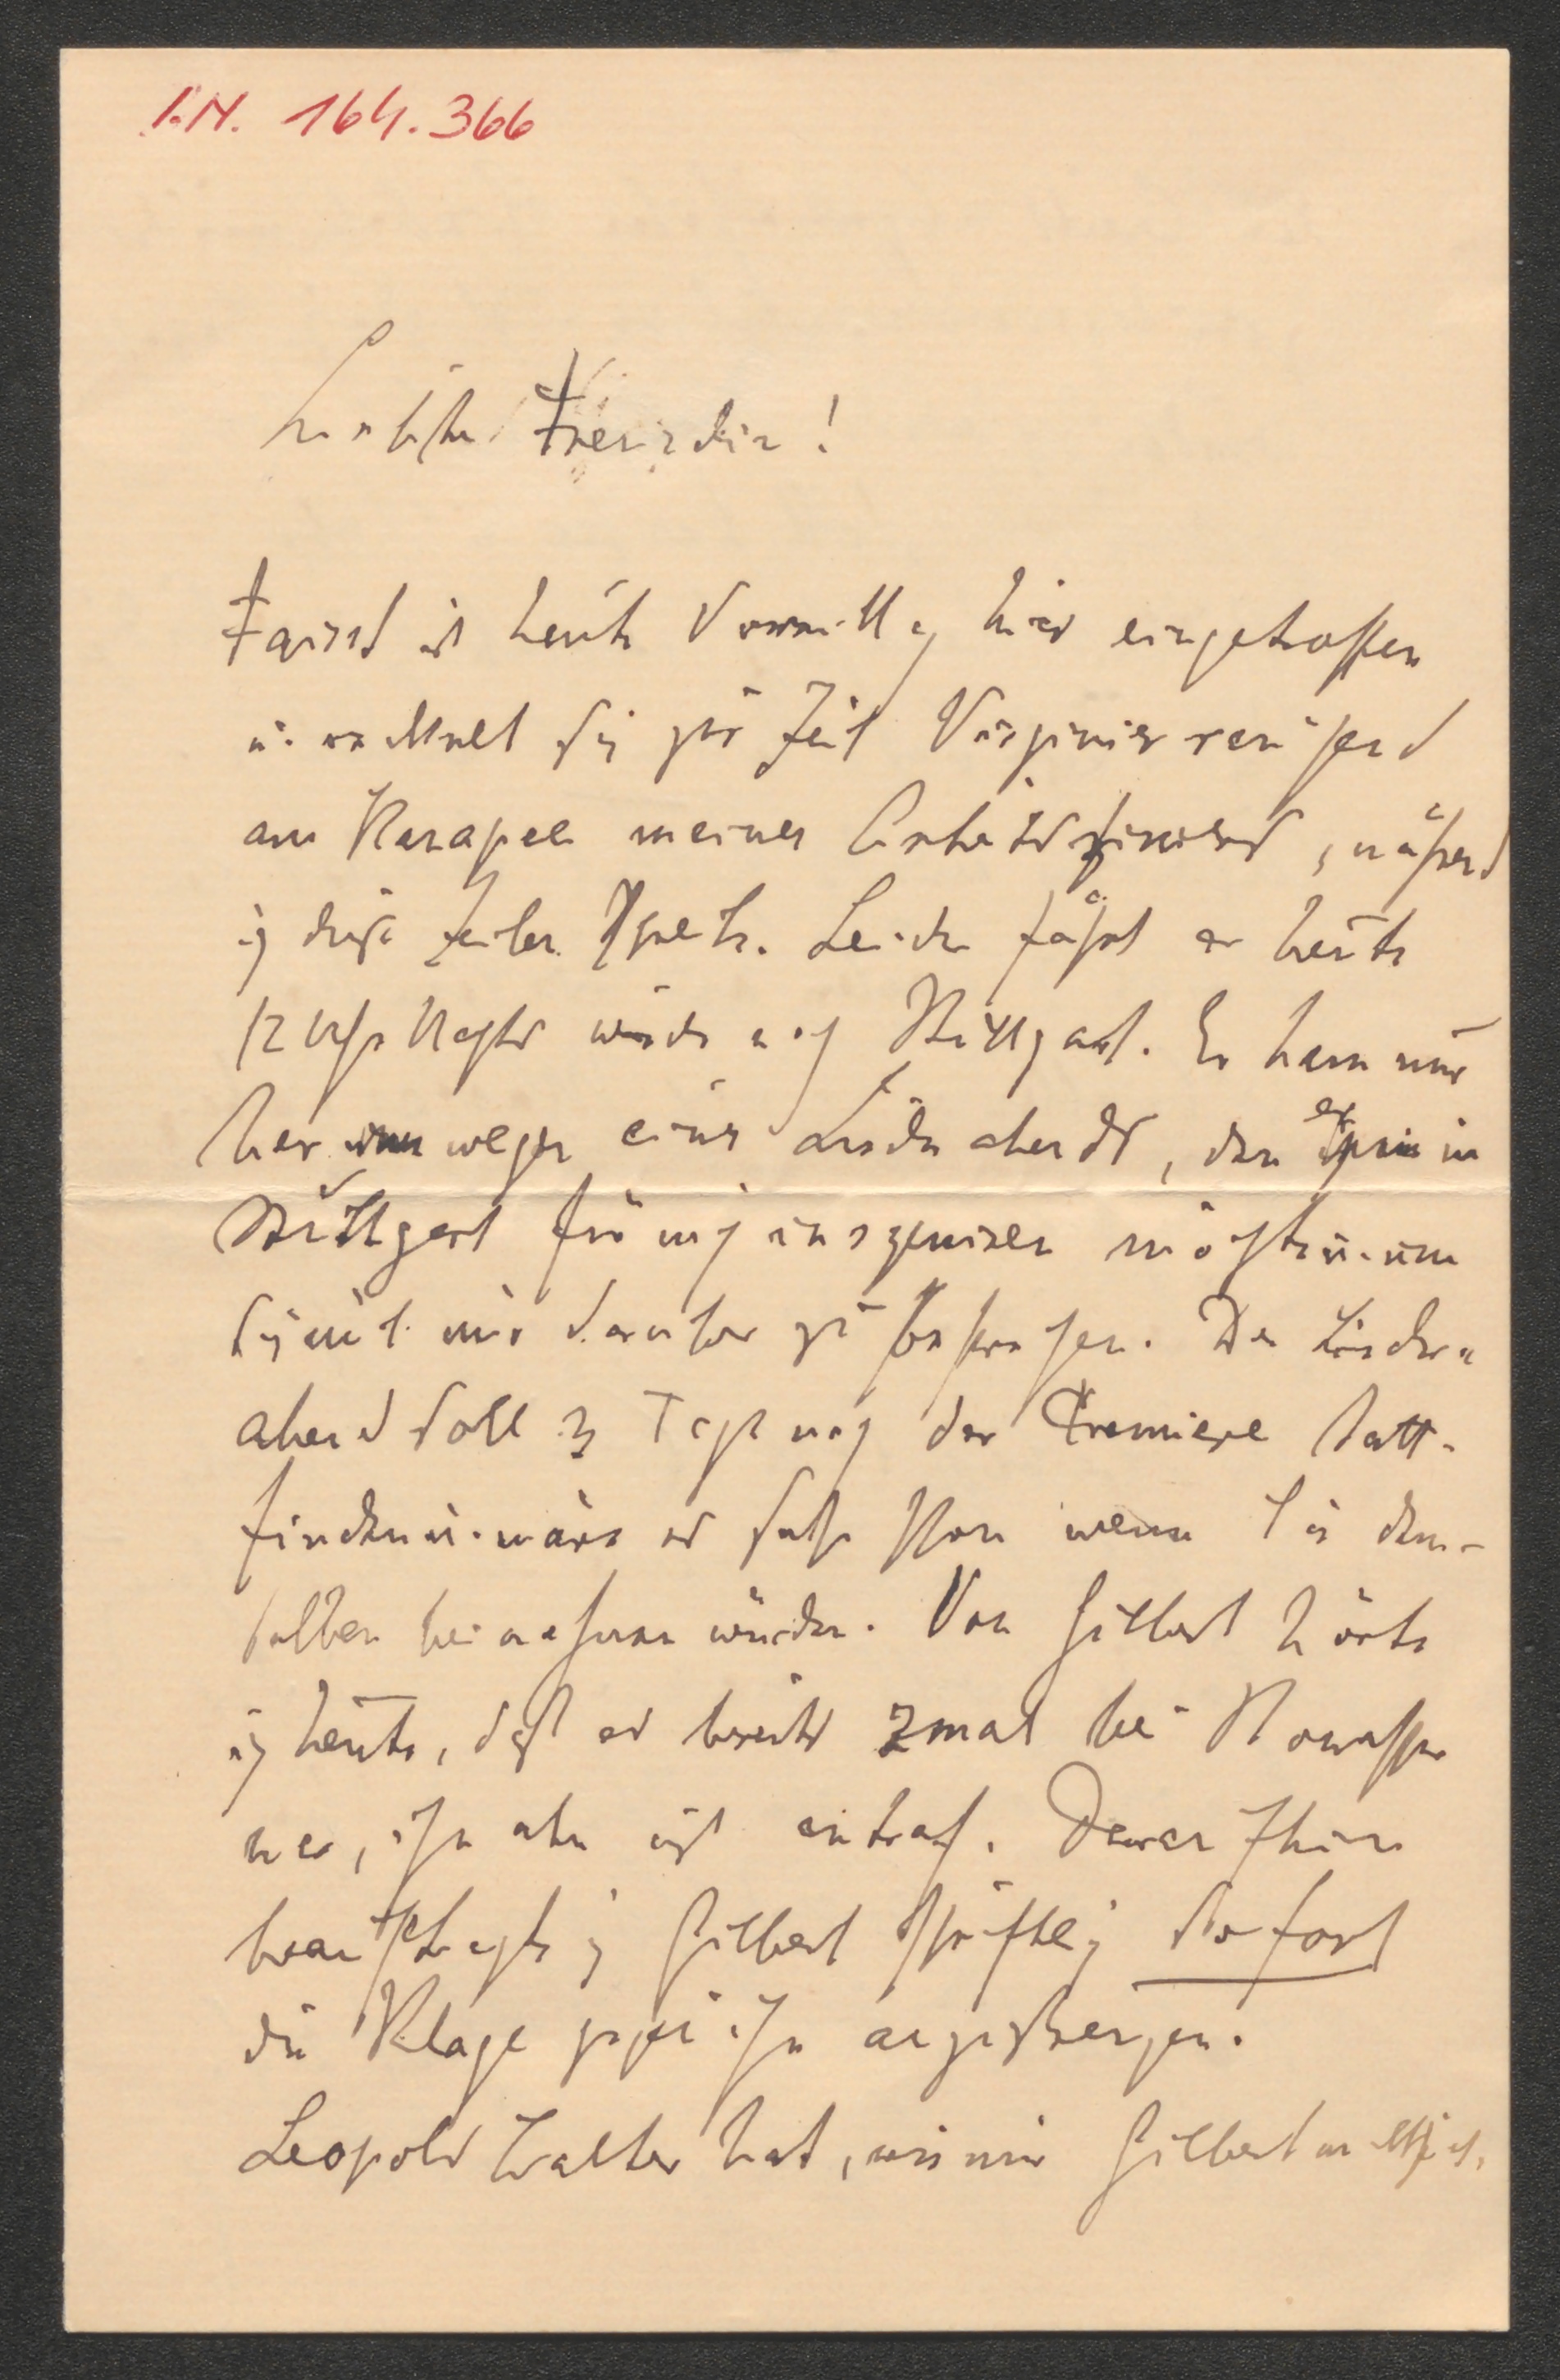 I.N. 164.366
Liebste Freundin!
Faisst ist heute Vormittag hier eingetroffen
u. räkelt sich zur Zeit Virginier rauchend
am Kanapee meines Arbeitszimmers, während
ich diese Zeilen schreibe. Leider fährt er heute
12 Uhr Nachts wieder nach Stuttgart. Er kam nur
her wegen eines Liederabends, den er in
Stuttgart für mich inszeniren möchte u. um
sich mit mir darüber zu besprechen. Der Lieder-
abend soll 3 Tage nach der Premiere statt-
finden u. wäre es sehr schön wenn Sie dem-
selben beiwohnen würden. Von Hilbert hörte
ich heute, daß er bereits 2mal bei
war, ihn aber nicht antraf. Daraufhin
beauftragte ich Hilbert schriftlich sofort
die Klage gegen ihn anzustrengen.
Leopold Walter hat, wie mir Hilbert mittheilt,